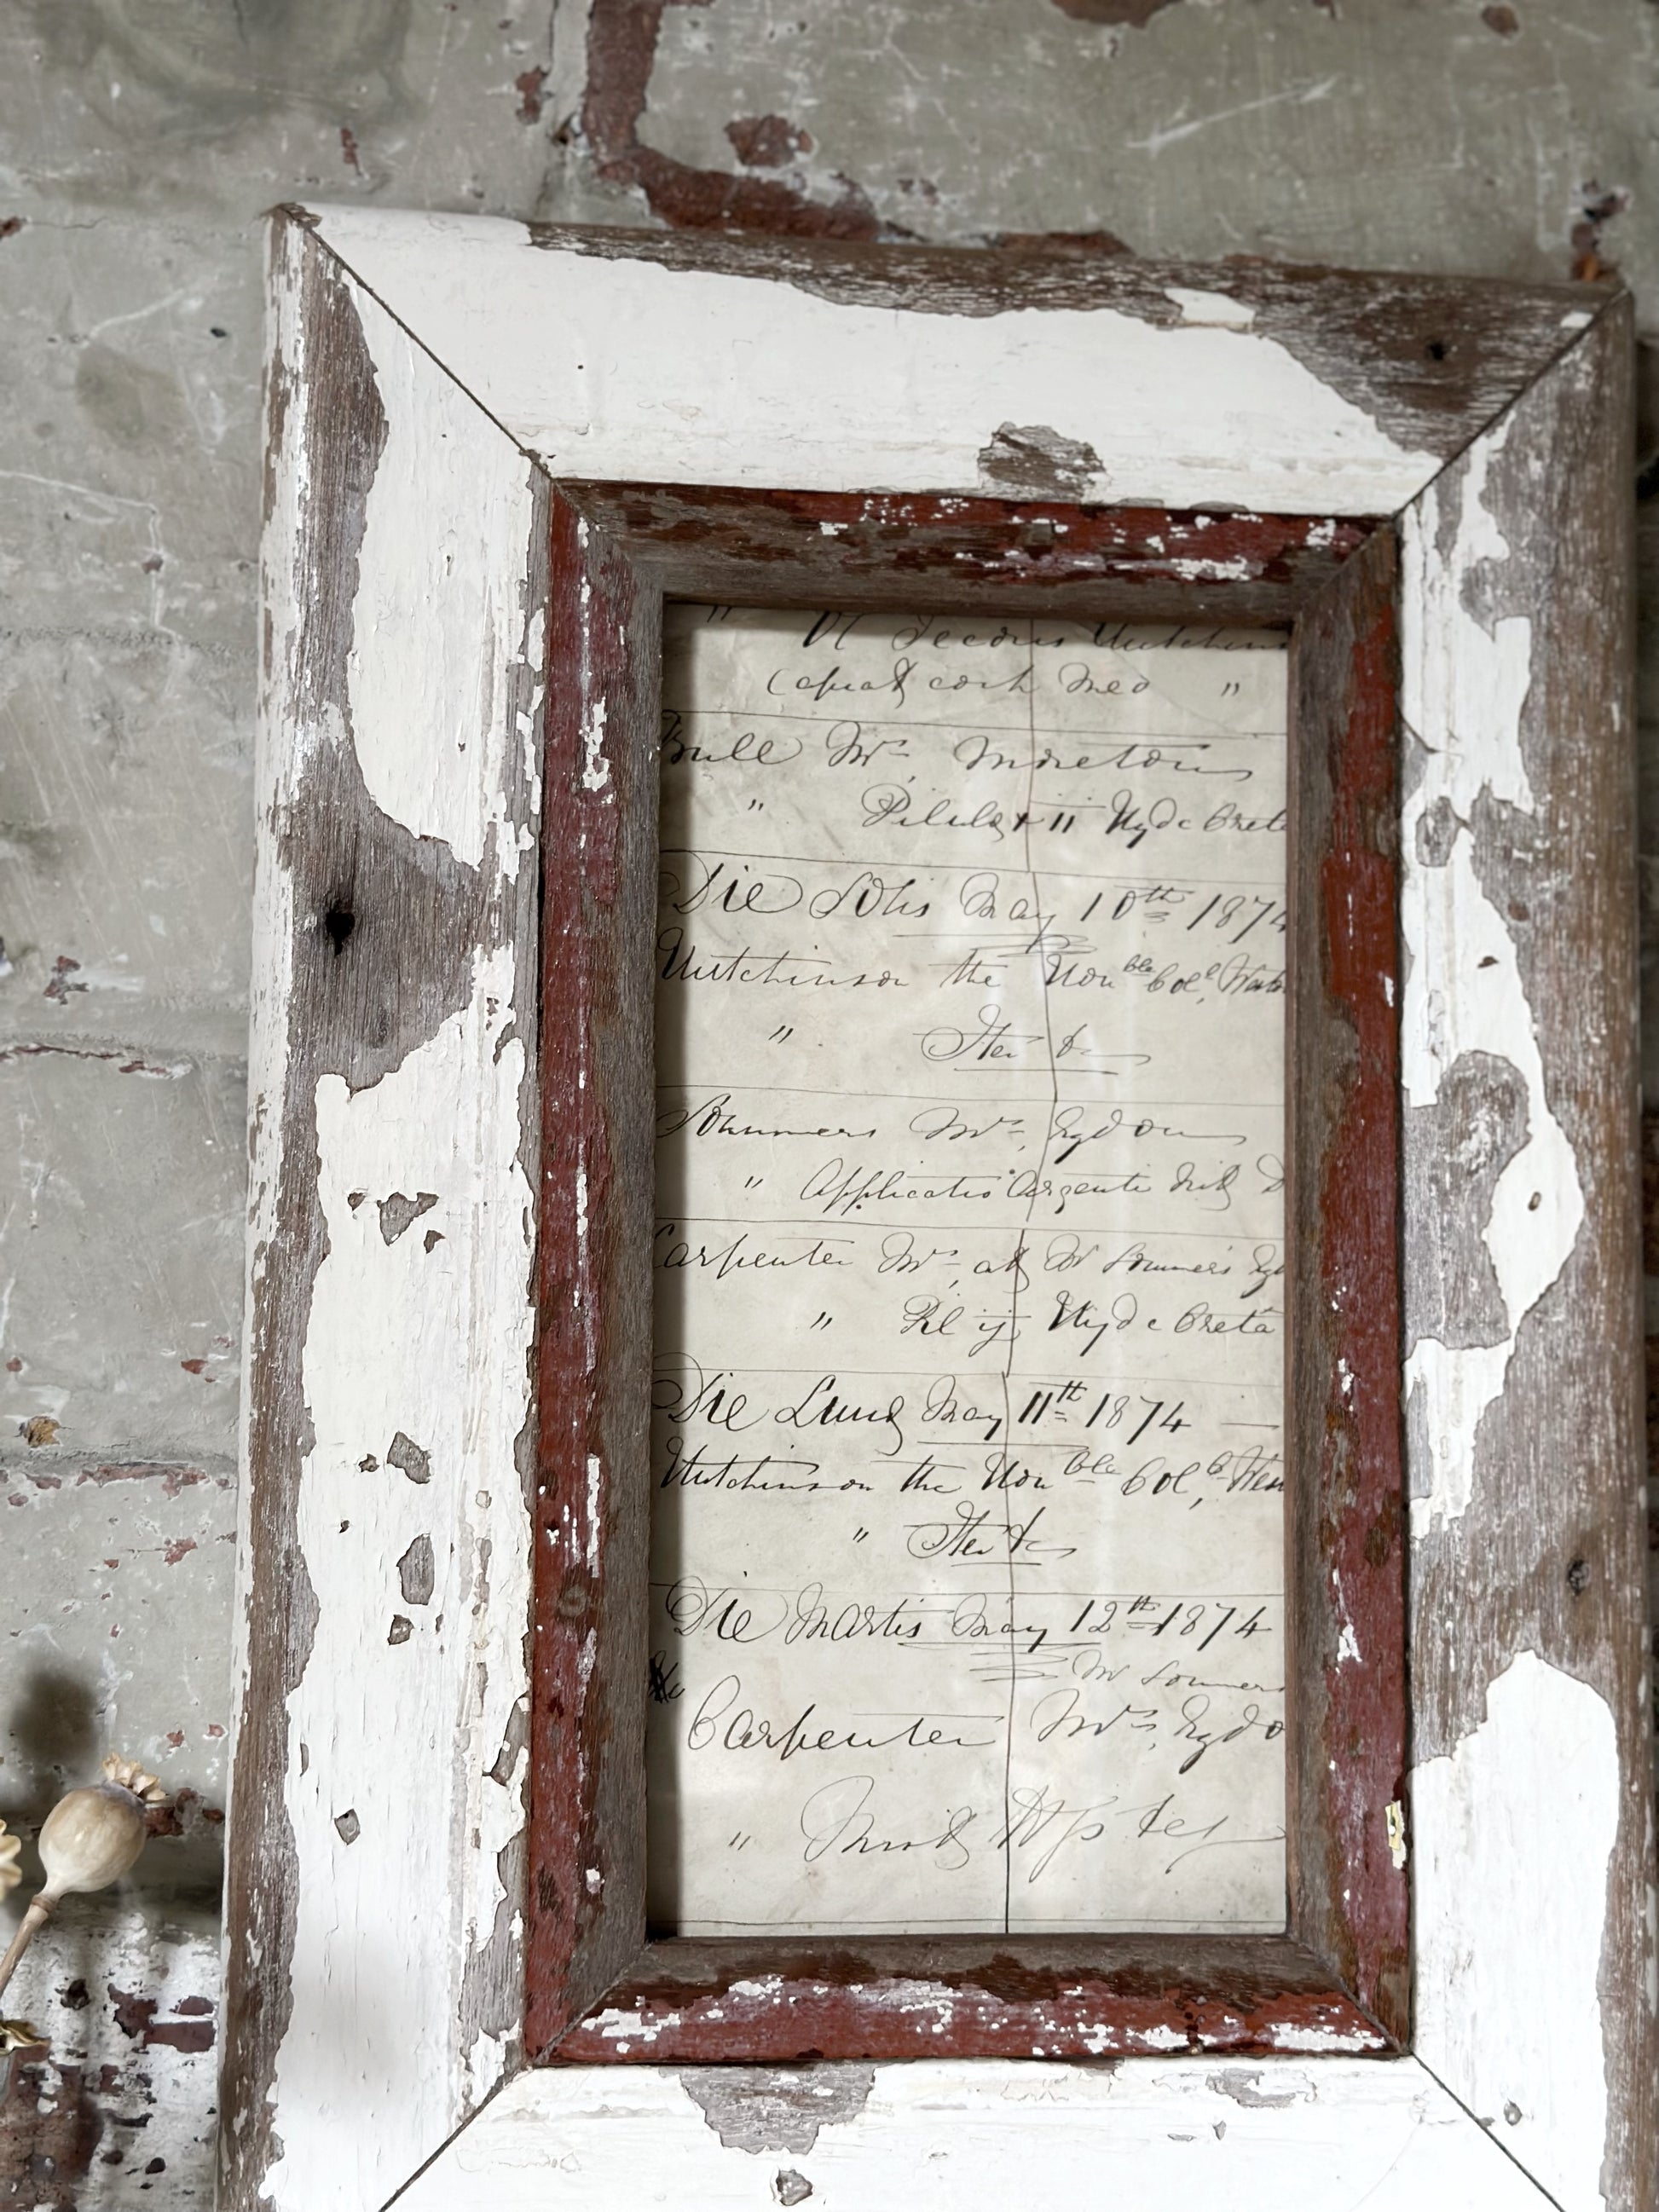 " Vt Jecoris Hutchins
( cpiat coch Med "
Bull Mrs Moreton
" Pilulas ii Hyd c Creta
Die Solis May 10th 1874
Hutchinson the Honble Coll,
" Iter &c
Sommers Mrs, Egdon
" Applicatio Argenti Nit
Carpenter Mrs, at Mr Sommers
" Pil ij Hyd c Creta
Die Lunæ May 11th 1874
Hutchinson the Honble Coll,
" Iter &c
Die Martis May 12th 1874
Mr Sommers
Carpenter Mrs, Egdo
" Mist